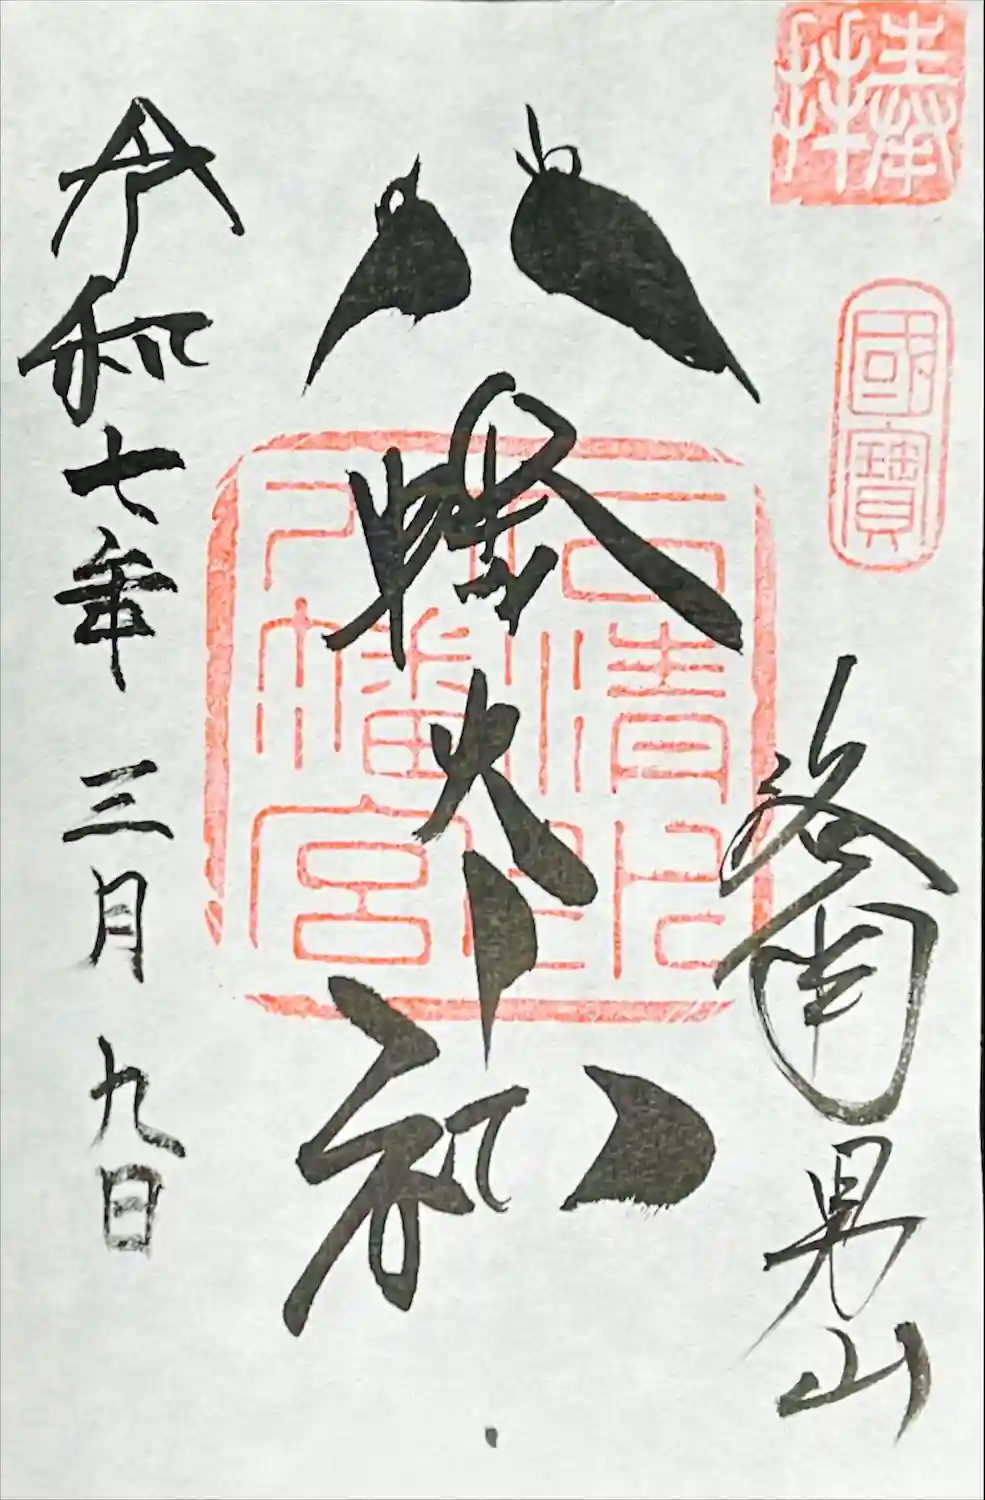 奉拜
國寶
洛南男山
八幡大
石清水
八幡宮
令和七年三月九日